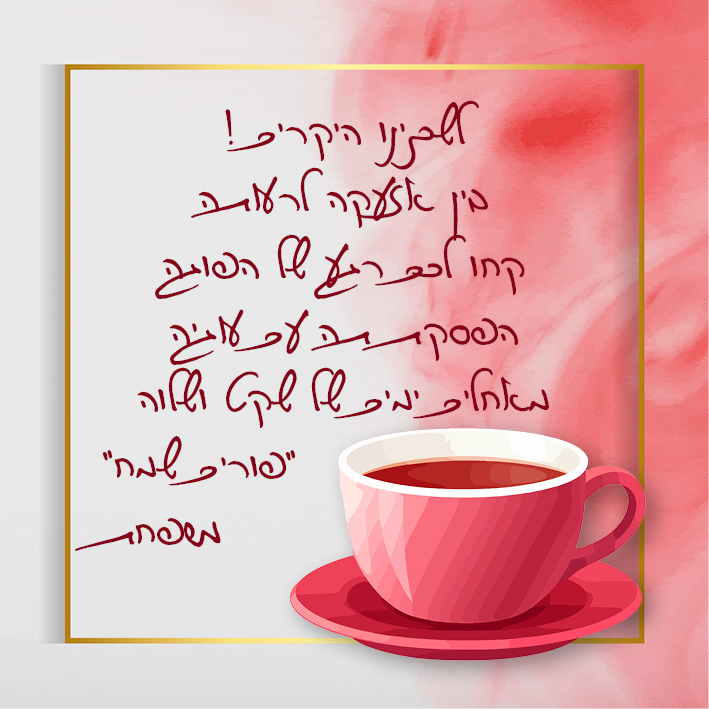 לשכנינו היקרים!
בין אזעקה לרעותה
קחו לכם רגע של הפוגה
הפסקת תה עם עוגיה
מאחלים ימים של שקט ושלוה
"פורים שמח"
משפחת